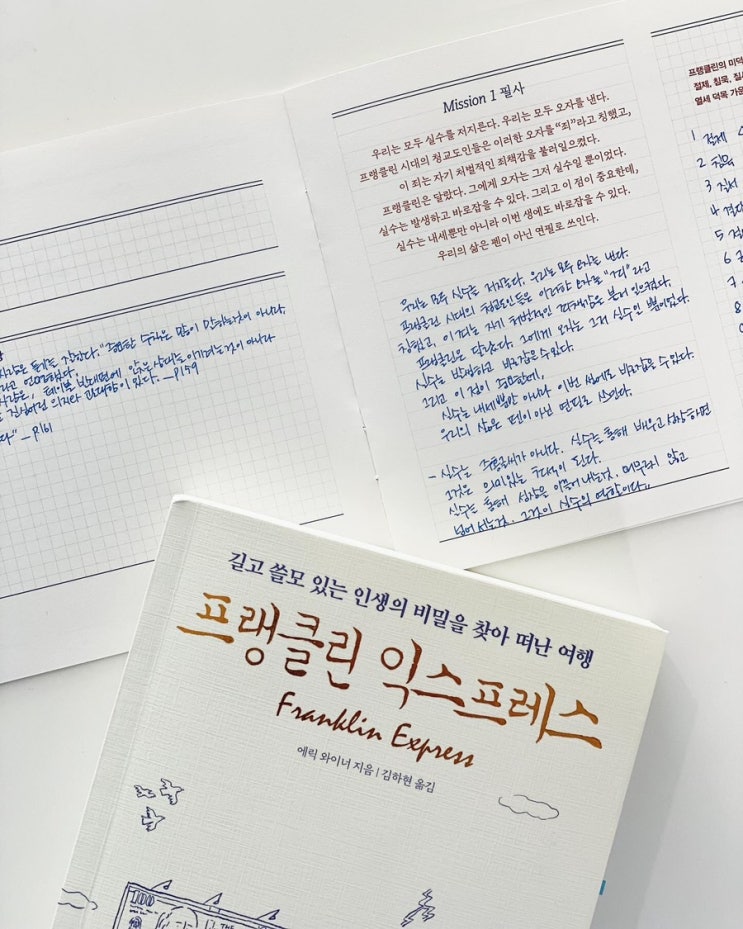 시작은 듣기를 각한다. "중요한 누락은 말이 안하는것이 아니라,
라고 언급했다.
테이블 반대편에 앉은 상대를 이기려는것이 아니라
의지와 관대함이 있다. — P159
다" — P161
Mission 1 필사
우리는 모두 실수를 저지른다. 우리는 모두 오자를 낸다.
프랭클린 시대의 청교도인들은 이러한 오자를 "죄"라고 칭했고,
이 죄는 자기 처벌적인 죄책감을 불러일으켰다.
프랭클린은 달랐다. 그에게 오자는 그저 실수일 뿐이었다.
실수는 발생하고 바로잡을 수 있다. 그리고 이 점이 중요한데,
실수는 내세뿐만 아니라 이번 생에도 바로잡을 수 있다.
우리의 삶은 펜이 아닌 연필로 쓰인다.
우리는 모두 실수를 저지른다. 우리는 모두 오자를 낸다.
프랭클린 시대의 청교도인들은 이러한 오자를 "죄"라고
칭했고, 이 죄는 자기 처벌적인 죄책감을 불러 일으켰다.
프랭클린은 달랐다. 그에게 오자는 그저 실수인 뿐이었다.
실수는 발생하고 바로잡을 수 있다.
그리고 이 점이 중요한데,
실수는 내세뿐만 아니라 이번 생에도 바로잡을 수 있다.
우리의 삶은 펜이 아닌 연필로 쓰인다.
- 실수는 주홍글씨가 아니다. 실수를 통해 배우고 성장하면
그것은 의미있는 흔적이 된다.
실수를 통해 성장을 이끌어 내는것. 머무르지 않고
넘어 서는것. 그것이 실수의 역할이다.
프랭클린의 미덕
절제, 침묵, 질서
열세 덕목 가운
1 절제
2 침묵
3 질서
4 결단
5 절
6
7
8
길고 쓸모 있는 인생의 비밀을 찾아 떠난 여행
프랭클린 익스프레스
Franklin Express
에릭 와이너 지음 | 김하현 옮김
100
THE